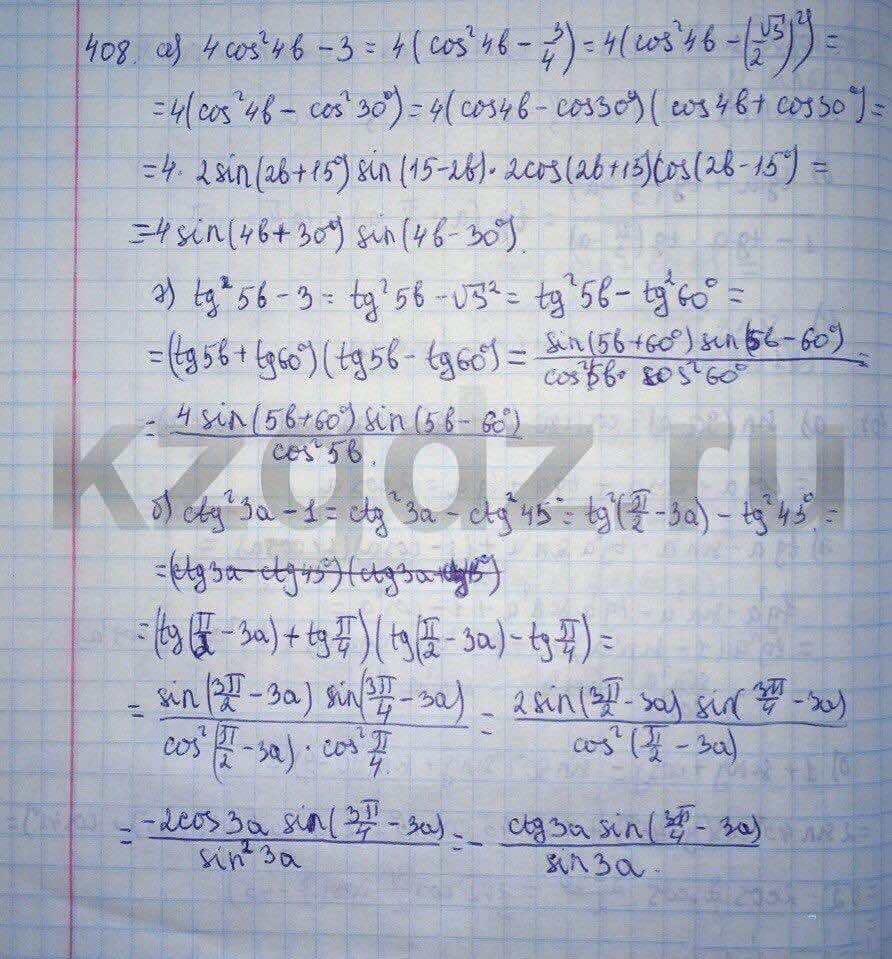 408. а) 4cos²4b - 3 = 4(cos²4b - 3/4) = 4(cos²4b - (√3/2)²) =
= 4(cos²4b - cos²30°) = 4(cos4b - cos30°)(cos4b + cos30°) =
= 4 · 2sin(2b+15°) sin(15-2b) · 2cos(2b+15)cos(2b-15°) =
= 4sin(4b+30°) sin(4b-30°).
г) tg²5b - 3 = tg²5b - √3² = tg²5b - tg²60° =
= (tg5b + tg60°)(tg5b - tg60°) = sin(5b+60°) sin(5b-60°) / cos²5b · cos²60° =
= 4sin(5b+60°) sin(5b-60°) / cos²5b.
kzgdz.ru
б) ctg²3a - 1 = ctg²3a - ctg²45° = tg²(π/2 - 3a) - tg²45° =
= (ctg3a - ctg45°)(ctg3a + ctg45°)
= (tg(π/2 - 3a) + tg π/4)(tg(π/2 - 3a) - tg π/4) =
= sin(3π/2 - 3a) sin(3π/4 - 3a) / cos²(π/2 - 3a) · cos² π/4 = 2sin(3π/2 - 3a) sin(3π/4 - 3a) / cos²(π/2 - 3a)
= -2cos3a sin(3π/4 - 3a) / sin²3a = - ctg3a sin(3π/4 - 3a) / sin3a.